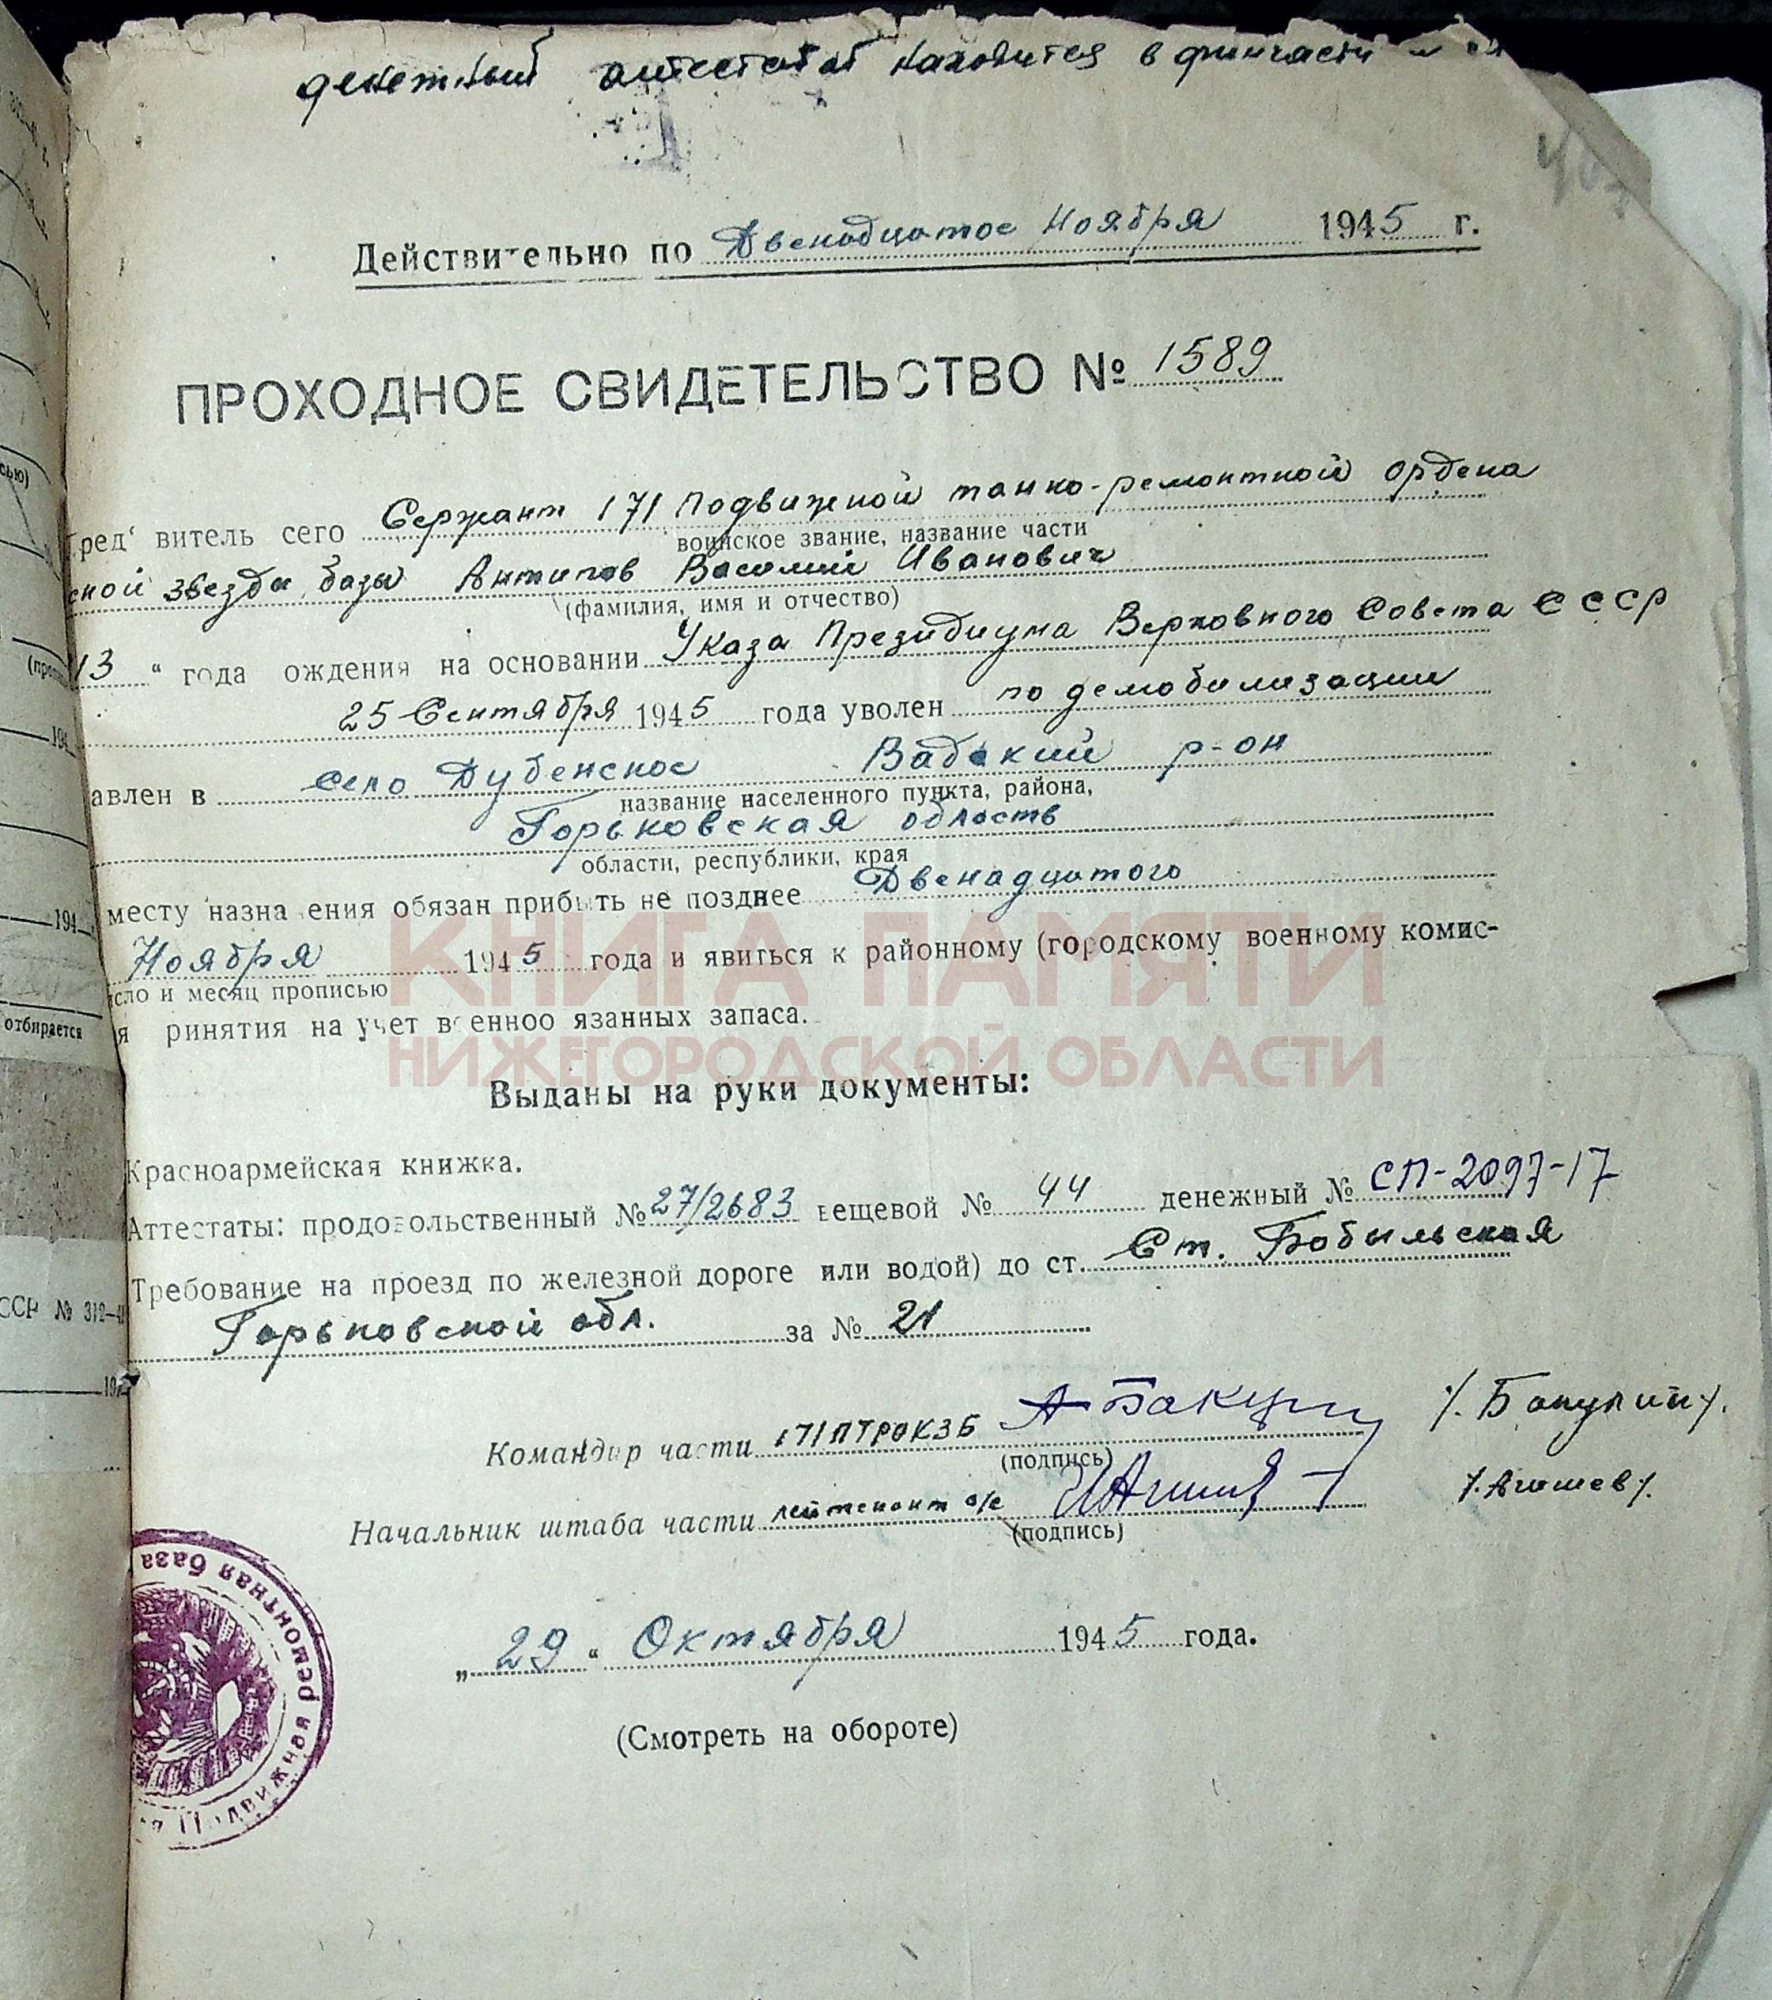 денежный аттестат находится в финчасти
Действительно по Двенадцатое Ноября 1945 г.
ПРОХОДНОЕ СВИДЕТЕЛЬСТВО № 1589
ред витель сего Сержант 171 Подвижной танко-ремонтной ордена
воинское звание, название части
сной звезды базы Антипов Василий Иванович
(фамилия, имя и отчество)
13 " года ождения на основании Указа Президиума Верховного Совета СССР
25 Сентября 1945 года уволен по демобилизации
авлен в село Дубенское Вадский р-он
название населенного пункта, района,
Горьковская область
области, республики, края
месту назна ения обязан прибыть не позднее Двенадцатого
Ноября 1945 года и явиться к районному (городскому военному комис-
сло и месяц прописью
я ринятия на учет военноо язанных запаса.
КНИГА ПАМЯТИ
НИЖЕГОРОДСКОЙ ОБЛАСТИ
Выданы на руки документы:
Красноармейская книжка.
Аттестаты: продовольственный № 27/2683 вещевой № 44 денежный № СП-2097-17
Требование на проезд по железной дороге или водой) до ст. Ст. Бобыльская
Горьковской обл. за № 21
Командир части 171 ПТРОКЗБ А Бакулин /. Бакулин/.
(подпись)
Начальник штаба части лейтенант а/с /.Агошев/.
(подпись)
„ 29 " Октября 1945 года.
(Смотреть на обороте)
Подвижная ремонтная база
отбирается
ССР № 312
194
194